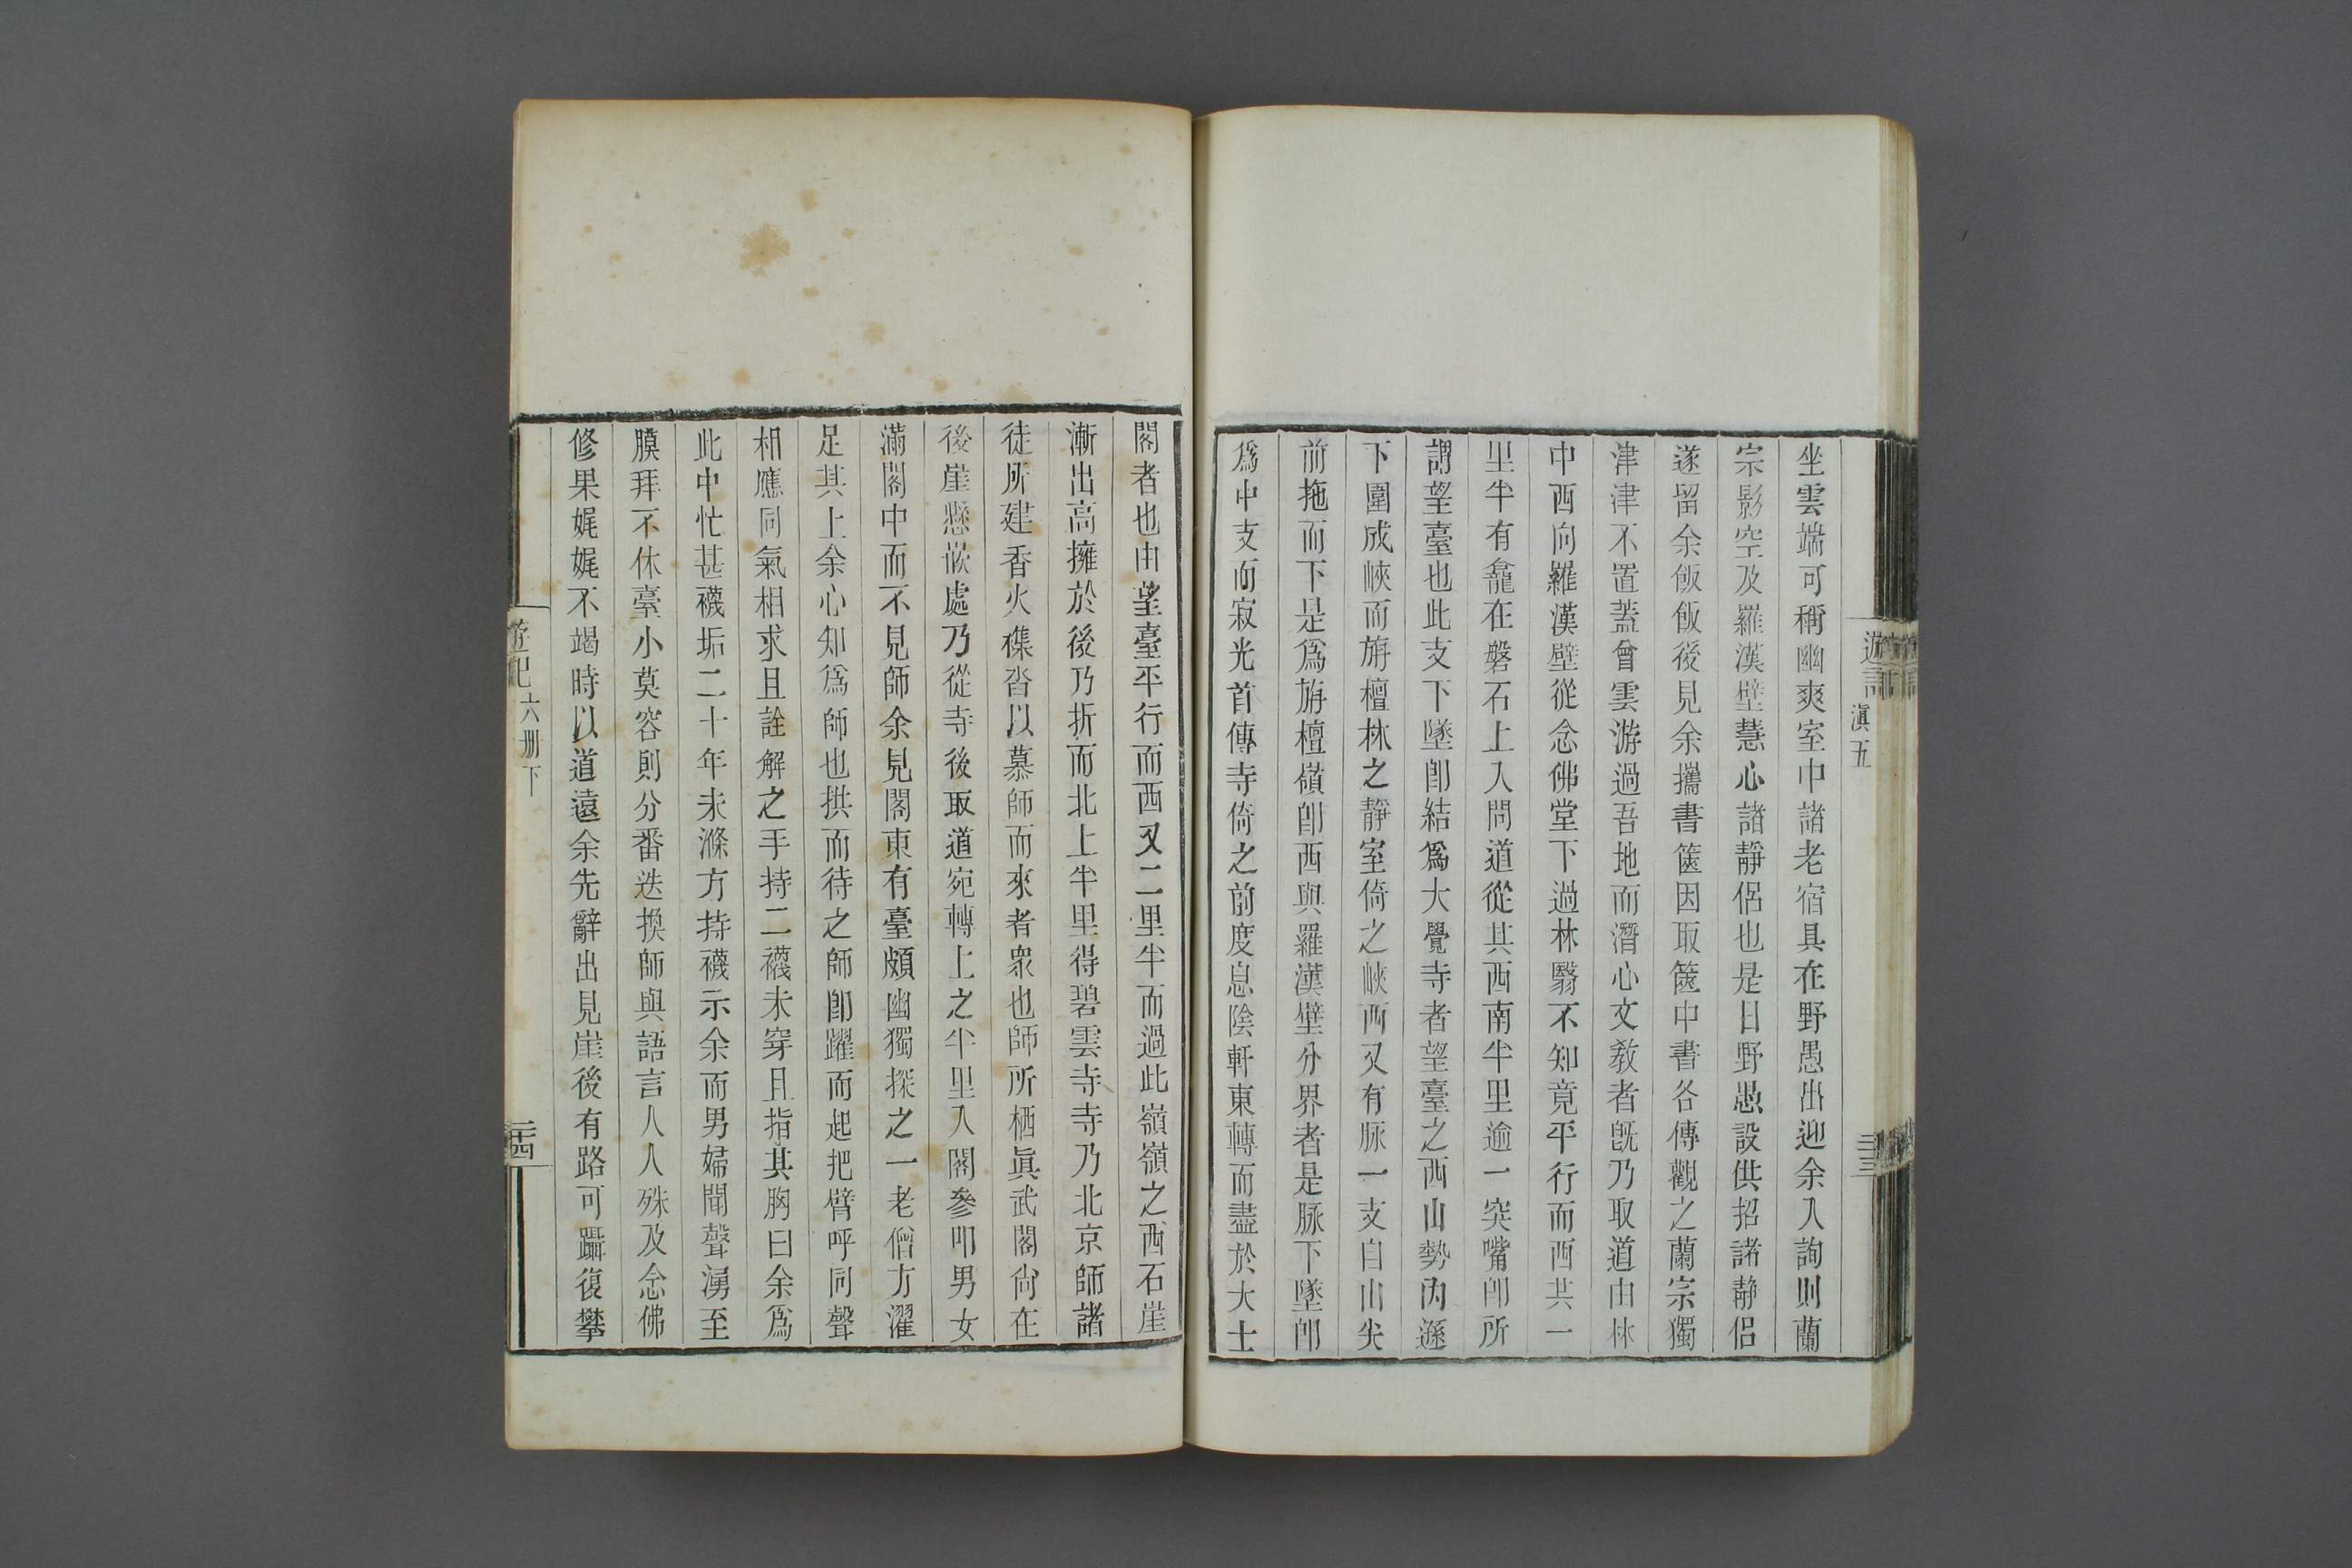 遊記
滇五
三三
坐雲端可稱幽爽室中諸老宿具在野愚出迎余入詢則蘭
宗影空及羅漢壁慧心諸靜侶也是日野愚設供招諸靜侶
遂留余飯飯後見余攜書篋因取篋中書各傳觀之蘭宗獨
津津不置蓋曾雲游過吾地而潛心文教者旣乃取道由林
中西向羅漢壁從念佛堂下過林翳不知竟平行而西共一
里半有龕在磐石上入問道從其西南半里逾一突嘴卽所
謂望臺也此支下墜卽結爲大覺寺者望臺之西山勢內遜
下圍成峽而旃檀林之靜室倚之峽西又有脈一支自山尖
前拖而下是爲旃檀嶺卽西與羅漢壁分界者是脈下墜卽
爲中支而寂光首傳寺倚之前度息陰軒東轉而盡於大士
閣者也由望臺平行而西又二里半而過此嶺嶺之西石崖
漸出高擁於後乃折而北上半里得碧雲寺寺乃北京師諸
徒所建香火襍沓以慕師而來者衆也師所栖眞武閣尚在
後崖懸嵌處乃從寺後取道宛轉上之半里入閣參叩男女
滿閣中而不見師余見閣東有臺頗幽獨探之一老僧方濯
足其上余心知爲師也拱而待之師卽躍而起把臂呼同聲
相應同氣相求且詮解之手持二襪未穿且指其胸曰余爲
此中忙甚襪垢二十年未滌方持襪示余而男婦聞聲湧至
膜拜不休臺小莫容則分番迭換師與語言人人殊及念佛
修果娓娓不竭時以道遠余先辭出見崖後有路可躡復攀
遊記
六册下
三四